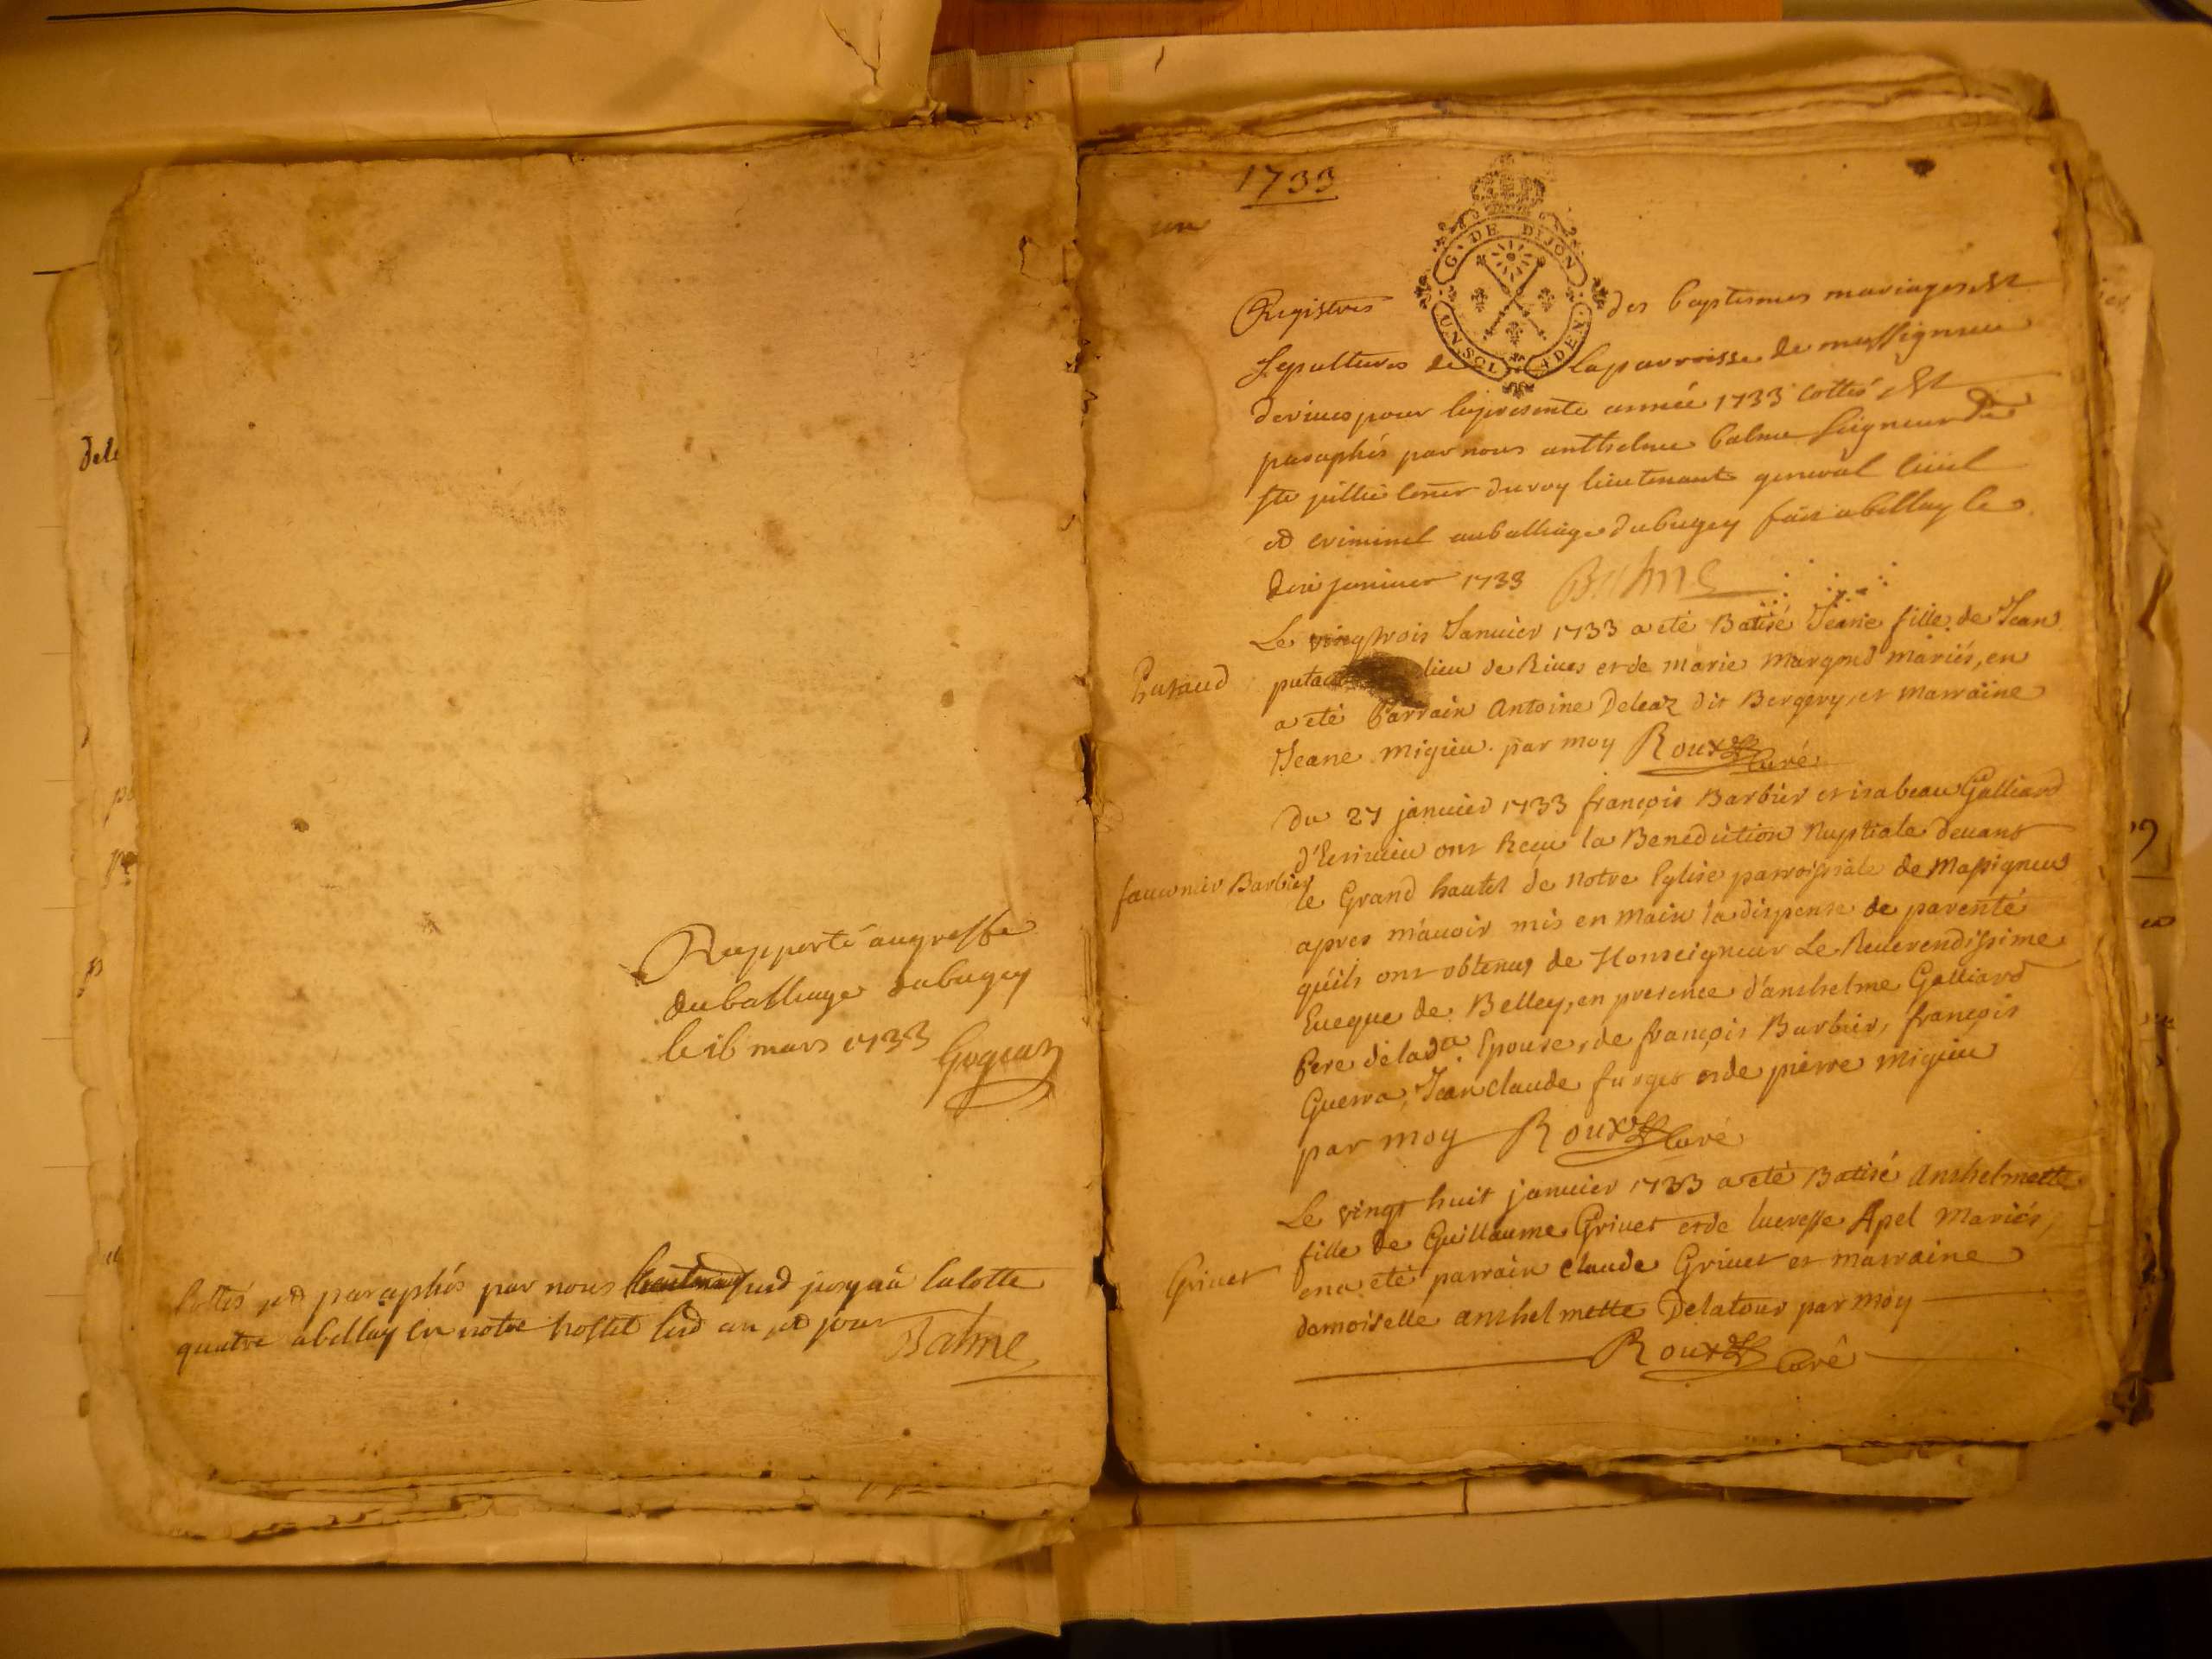 Rapporté au greffe
du balliage du bugey
le 16 mars 1733
Cottés et paraphés par nous jusqu'a la cotte
quatre a bellay en notre hostel lesd an et jour Balme
1733
un
G. DE DIJON
UN SOL 4 DEN.
Registres des baptesmes mariages et
sepultures de la parroisse de massigneu
derives pour la presente année 1733 cottés et
paraphés par nous anthelme balme seigneur de
ste jullie du roy lieutenant general civil
et criminel au balliage du bugey fait a bellay le
janvier 1733 Balme
Le vingtrois Januier 1733 a eté Batisé Jeane fille de Jean
Putaud
lieu de Riues et de marie mariés, en
a eté Parrain Antoine Deleaz dit Bergery, et marraine
Jeane migieu. par moy Roux Curé
Du 27 januier 1733 françois Barbier et isabeau Galliard
ont Recu la Benediction Nuptiale deuant
Barbier
le Grand hautel de notre Eglise parroissiale de Massigneu
apres m'auoir mis en main la dispense de parenté
qu'ils ont obtenus de Monseigneur Le Reuerendissime
Eueque de Belley, en presence d'anthelme Galliard
Pere de lad.a Epouse, de françois Barbier, françois
Guerra, Jean claude et de pierre migieu
par moy Roux Curé
Le vingt huit januier 1733 a eté Batisé Anthelmette
fille de Guillaume Griuet et de lucresse Apel Mariés,
Griuet
en a eté parrain Claude Griuet et marraine
damoiselle anthelmette Delatour par moy
Roux Curê